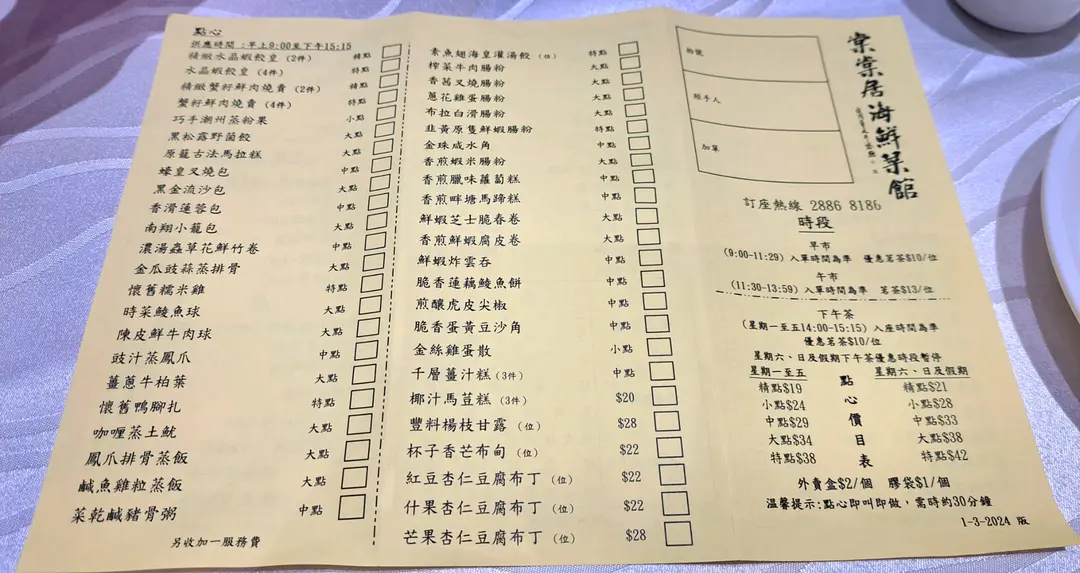 點心
供應時間 :早上9:00至下午15:15
精緻水晶蝦餃皇 (2件) 精點
水晶蝦餃皇 (4件) 特點
精緻蟹籽鮮肉燒賣 (2件) 精點
蟹籽鮮肉燒賣 (4件) 特點
巧手潮州蒸粉果 小點
黑松露野菌餃 大點
原籠古法馬拉糕 大點
蠔皇叉燒包 中點
黑金流沙包 大點
香滑蓮蓉包 中點
南翔小籠包 大點
濃湯蟲草花鮮竹卷 中點
金瓜豉蒜蒸排骨 大點
懷舊糯米雞 特點
時菜鯪魚球 大點
陳皮鮮牛肉球 大點
豉汁蒸鳳爪 中點
薑蔥牛柏葉 大點
懷舊鴨腳扎 特點
咖喱蒸土魷 大點
鳳爪排骨蒸飯 大點
鹹魚雞粒蒸飯 大點
菜乾鹹豬骨粥 中點
另收加一服務費
素魚翅海皇灌湯餃 (位) 特點
榨菜牛肉腸粉 大點
香茜叉燒腸粉 大點
蔥花雞蛋腸粉 大點
布拉白滑腸粉 大點
韭黃原隻鮮蝦腸粉 特點
金珠咸水角 中點
香煎蝦米腸粉 大點
香煎臘味蘿蔔糕 中點
香煎畔塘馬蹄糕 中點
鮮蝦芝士脆春卷 大點
香煎鮮蝦腐皮卷 大點
鮮蝦炸雲吞 中點
脆香蓮藕鯪魚餅 中點
煎釀虎皮尖椒 中點
脆香蛋黃豆沙角 中點
金絲雞蛋散 小點
千層薑汁糕 (3件) 中點
椰汁馬荳糕 (3件) $20
豐料楊枝甘露 (位) $28
杯子香芒布甸 (位) $22
紅豆杏仁豆腐布丁 (位) $22
什果杏仁豆腐布丁 (位) $22
芒果杏仁豆腐布丁 (位) $28
枱號
經手人
加單
棠棠居海鮮菜館
訂座熱線 2886 8186
時段
早市
(9:00-11:29) 入單時間為準 優惠茗茶$10/位
午市
(11:30-13:59) 入單時間為準 茗茶$13/位
下午茶
(星期一至五14:00-15:15) 入座時間為準
優惠茗茶$10/位
星期六、日及假期下午茶優惠時段暫停
點心價目表
星期一至五 星期六、日及假期
精點$19 精點$21
小點$24 小點$28
中點$29 中點$33
大點$34 大點$38
特點$38 特點$42
外賣盒$2/個 膠袋$1/個
溫馨提示:點心即叫即做，需時約30分鐘
1-3-2024 版